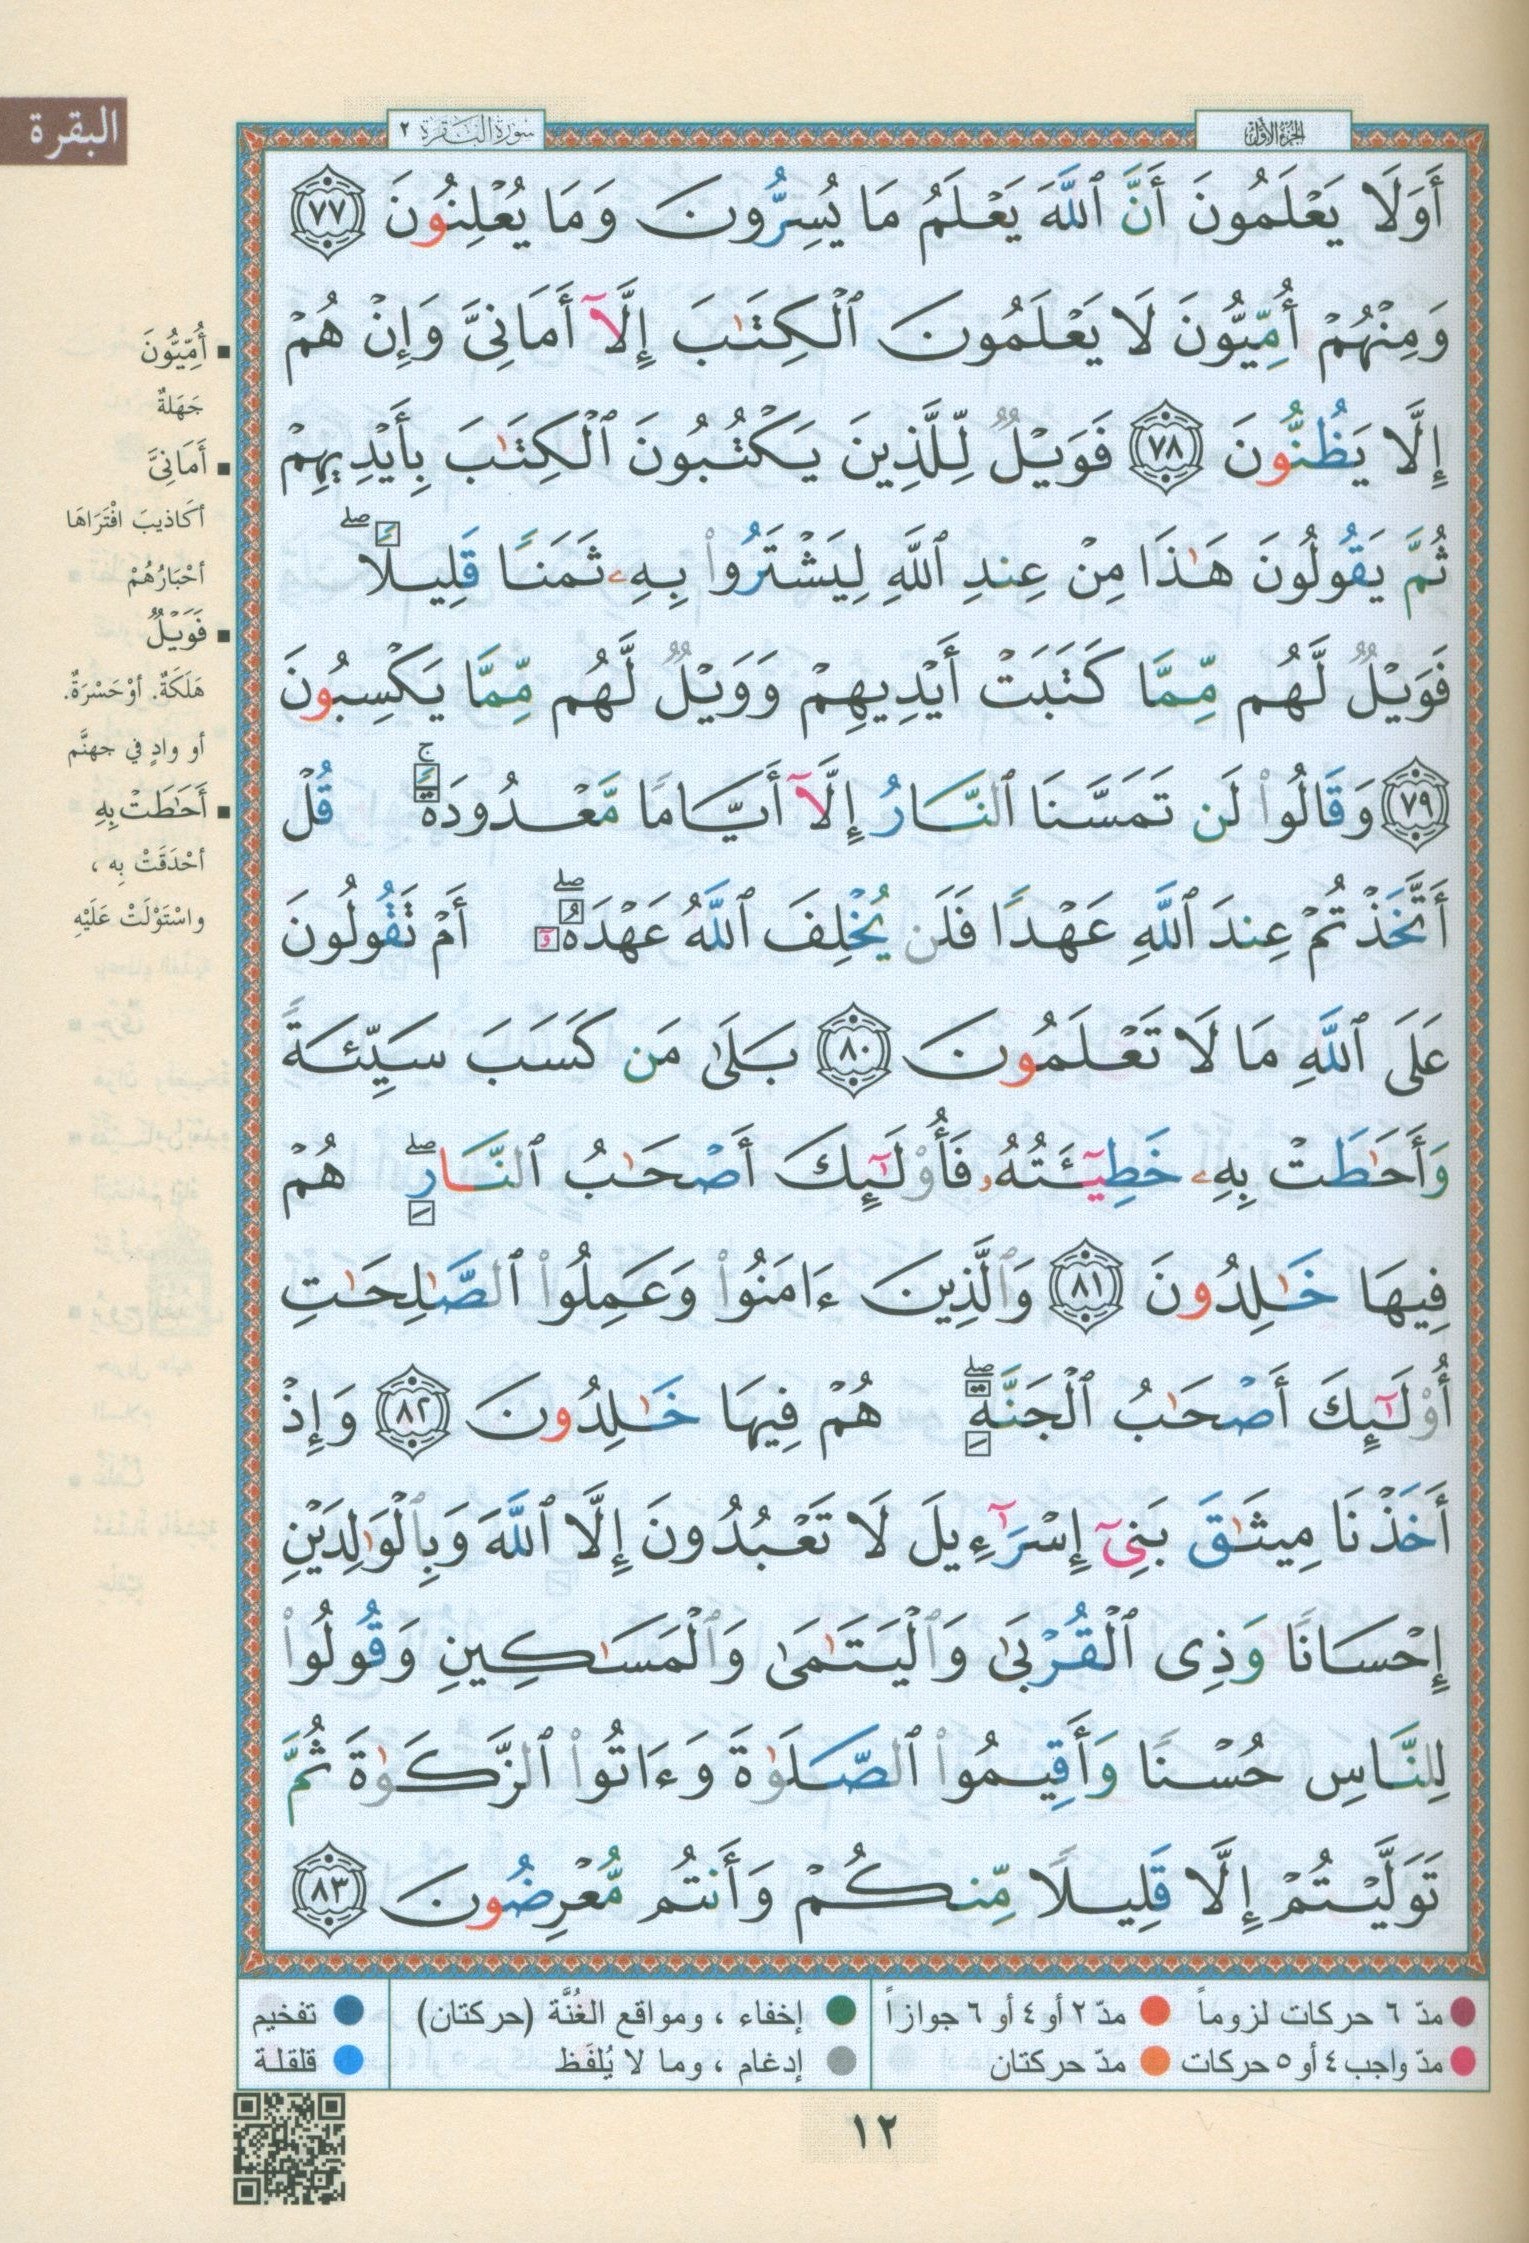 البقرة
الجزء الأول
سورة البقرة ٢
أَوَلَا يَعْلَمُونَ أَنَّ ٱللَّهَ يَعْلَمُ مَا يُسِرُّونَ وَمَا يُعْلِنُونَ ٧٧
وَمِنْهُمْ أُمِّيُّونَ لَا يَعْلَمُونَ ٱلْكِتَٰبَ إِلَّآ أَمَانِىَّ وَإِنْ هُمْ
إِلَّا يَظُنُّونَ ٧٨ فَوَيْلٌ لِّلَّذِينَ يَكْتُبُونَ ٱلْكِتَٰبَ بِأَيْدِيهِمْ
ثُمَّ يَقُولُونَ هَٰذَا مِنْ عِندِ ٱللَّهِ لِيَشْتَرُوا۟ بِهِۦ ثَمَنًا قَلِيلًا ۖ
فَوَيْلٌ لَّهُم مِّمَّا كَتَبَتْ أَيْدِيهِمْ وَوَيْلٌ لَّهُم مِّمَّا يَكْسِبُونَ
٧٩ وَقَالُوا۟ لَن تَمَسَّنَا ٱلنَّارُ إِلَّآ أَيَّامًا مَّعْدُودَةً ۚ قُلْ
أَتَّخَذْتُمْ عِندَ ٱللَّهِ عَهْدًا فَلَن يُخْلِفَ ٱللَّهُ عَهْدَهُۥٓ ۖ أَمْ تَقُولُونَ
عَلَى ٱللَّهِ مَا لَا تَعْلَمُونَ ٨٠ بَلَىٰ مَن كَسَبَ سَيِّئَةً
وَأَحَٰطَتْ بِهِۦ خَطِيٓـَٔتُهُۥ فَأُو۟لَٰٓئِكَ أَصْحَٰبُ ٱلنَّارِ ۖ هُمْ
فِيهَا خَٰلِدُونَ ٨١ وَٱلَّذِينَ ءَامَنُوا۟ وَعَمِلُوا۟ ٱلصَّٰلِحَٰتِ
أُو۟لَٰٓئِكَ أَصْحَٰبُ ٱلْجَنَّةِ ۖ هُمْ فِيهَا خَٰلِدُونَ ٨٢ وَإِذْ
أَخَذْنَا مِيثَٰقَ بَنِىٓ إِسْرَٰٓءِيلَ لَا تَعْبُدُونَ إِلَّا ٱللَّهَ وَبِٱلْوَٰلِدَيْنِ
إِحْسَانًا وَذِى ٱلْقُرْبَىٰ وَٱلْيَتَٰمَىٰ وَٱلْمَسَٰكِينِ وَقُولُوا۟
لِلنَّاسِ حُسْنًا وَأَقِيمُوا۟ ٱلصَّلَوٰةَ وَءَاتُوا۟ ٱلزَّكَوٰةَ ثُمَّ
تَوَلَّيْتُمْ إِلَّا قَلِيلًا مِّنكُمْ وَأَنتُم مُّعْرِضُونَ ٨٣
▪ أُمِّيُّونَ
جَهَلةٌ
▪ أَمَانِىَّ
أكَاذيبَ افْتَرَاهَا
أحْبَارُهُمْ
▪ فَوَيْلٌ
هَلَكَةٌ. أوْحَسْرَةٌ.
أو وادٍ في جهنَّم
▪ أَحَٰطَتْ بِهِ
أحْدَقَتْ بِه ،
واسْتَوْلَتْ عَلَيْهِ
مدّ ٦ حركات لزوماً مدّ ٢ أو ٤ أو ٦ جوازاً
مدّ واجب ٤ أو ٥ حركات مدّ حركتان
إخفاء ، ومواقع الغُنَّة (حركتان)
إدغام ، وما لا يُلفَظ
تفخيم
قلقلة
١٢